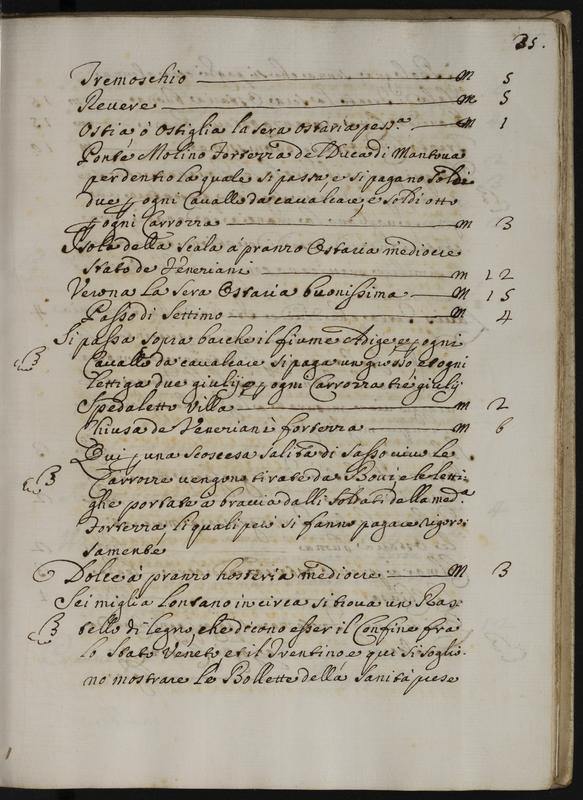 35.
Tremoschio m 5
Revere m 5
Ostia ò Ostiglia la sera ostaria pess.a m 1
Ponte Molino Fortezza del Duca di Mantova
per dentro la quale si passa e si pagano soldi
due p ogni Cavallo da cavalcare, e soldi otto
p ogni Carrozza m 3
Isola della Scala à pranzo Ostaria mediocre
stato de Veneziani m 12
Verona la sera Ostaria buonissima m 15
Passo di Settimo m 4
Si passa sopra barche il fiume Adige e p ogni
Cavallo da cavalcare si paga un grosso e p ogni
lettiga due giulij e p ogni Carrozza trè giulij
Spedaletto Villa m 2
Chiusa de Veneziani fortezza m 6
Qui p una scoscesa salita di sasso vivo le
Carrozze vengono tirate da Bovi, e le letti:
ghe portate à braccia dalli soldati della med.a
Fortezza, li quali poi si fanno pagare rigoro:
samente
Dolce à pranzo hosteria mediocre m 3
Sei miglia lontano in circa si trova un Ras:
tello di legno, che dicono esser il Confine fra
lo Stato Veneto et il Trentino e qui si soglio:
no mostrare le Bollette della sanità prese